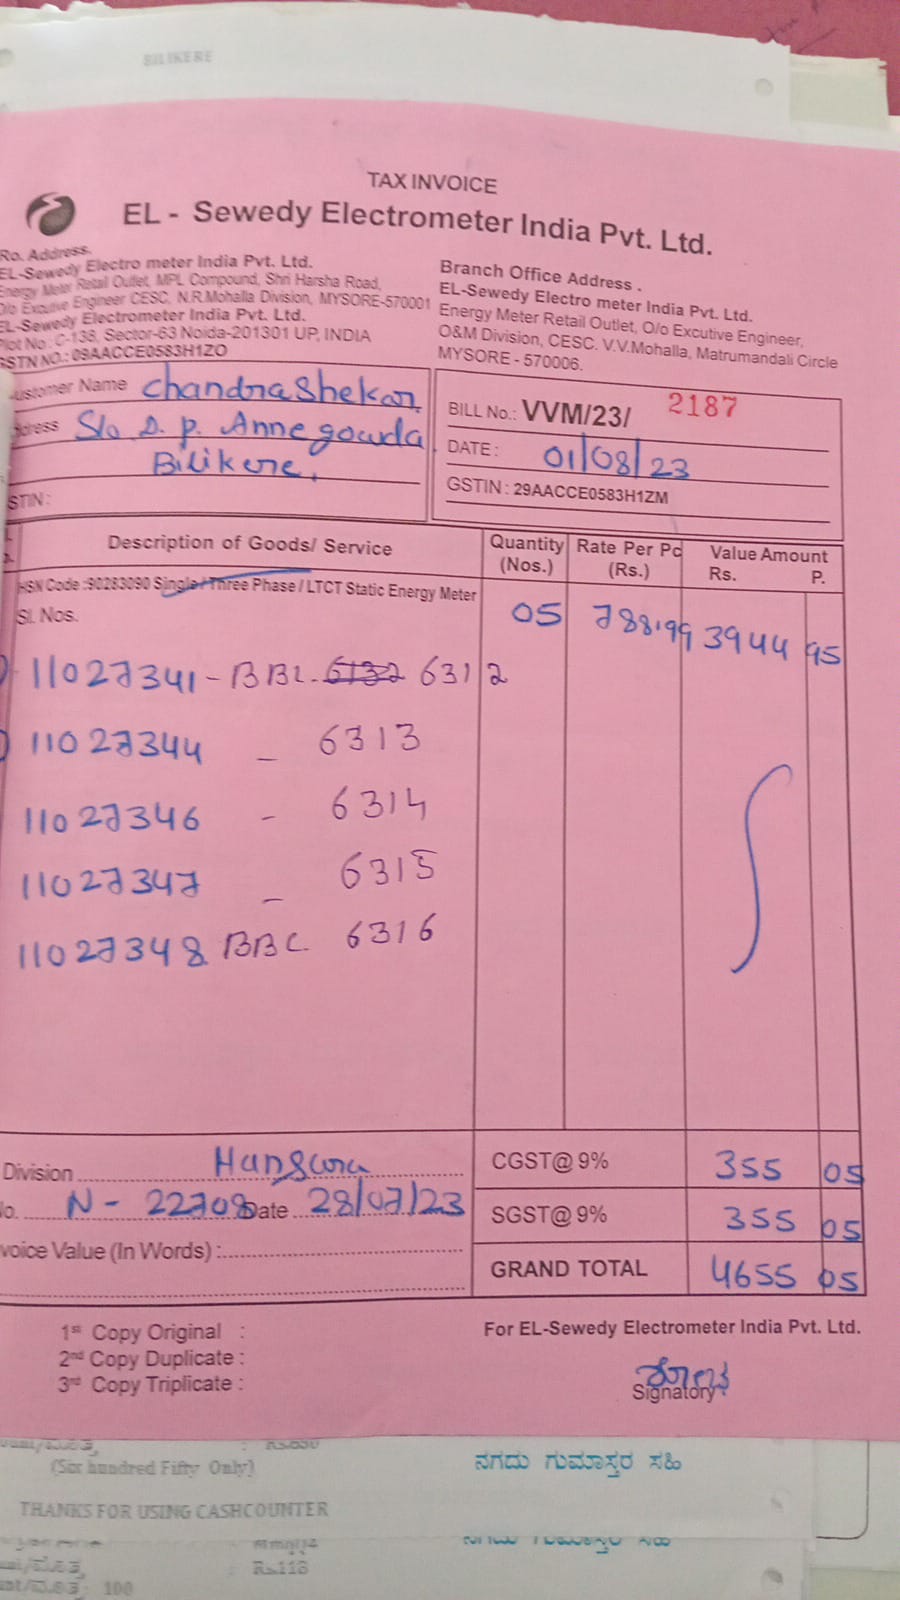 BILIKERE
TAX INVOICE
EL - Sewedy Electrometer India Pvt. Ltd.
Ro. Address.
EL-Sewedy Electro meter India Pvt. Ltd.
Energy Meter Retail Outlet, MPL Compound, Shri Harsha Road,
O/o Excutive Engineer CESC, N.R.Mohalla Division, MYSORE-570001
EL-Sewedy Electrometer India Pvt. Ltd.
Plot No : C-138, Sector-63 Noida-201301 UP, INDIA
GSTN NO.: 09AACCE0583H1ZO
Branch Office Address .
EL-Sewedy Electro meter India Pvt. Ltd.
Energy Meter Retail Outlet, O/o Excutive Engineer,
O&M Division, CESC. V.V.Mohalla, Matrumandali Circle
MYSORE - 570006.
ustomer Name Chandrashekar.
ddress S/o D. P. Annegowda,
Bilikere,
STIN :
BILL No.: VVM/23/ 2187
DATE : 01/08/23
GSTIN : 29AACCE0583H1ZM
Description of Goods/ Service Quantity (Nos.) Rate Per Pc (Rs.) Value Amount Rs. P.
HSN Code :90283090 Single / Three Phase / LTCT Static Energy Meter
Sl. Nos. 05 788.99 3944 95
11027341 - BBC. 6132 6312
11027344 - 6313
11027346 - 6314
11027347 - 6315
11027348 BBC. 6316
Division Hunsuru CGST@ 9% 355 05
No. N - 22708 Date 28/07/23 SGST@ 9% 355 05
voice Value (In Words) :
GRAND TOTAL 4655 05
1st Copy Original :
2nd Copy Duplicate :
3rd Copy Triplicate :
For EL-Sewedy Electrometer India Pvt. Ltd.
Signatory
: Rs.650
(Six hundred Fifty Only) ನಗದು ಗುಮಾಸ್ತರ ಸಹಿ
THANKS FOR USING CASHCOUNTER
ನಗದು ಗುಮಾಸ್ತರ ಸಹಿ
: Rs.118
100